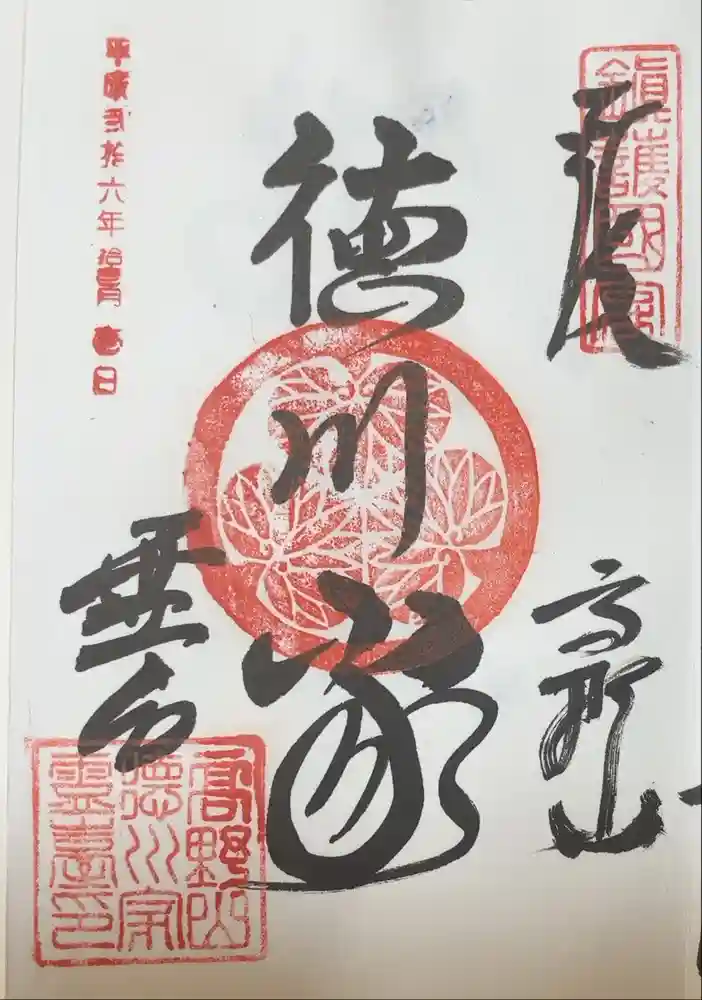 鎮護國家
高野山
徳川家
霊台
平成弐拾六年拾壹月 日
高野山
徳川家
靈臺印